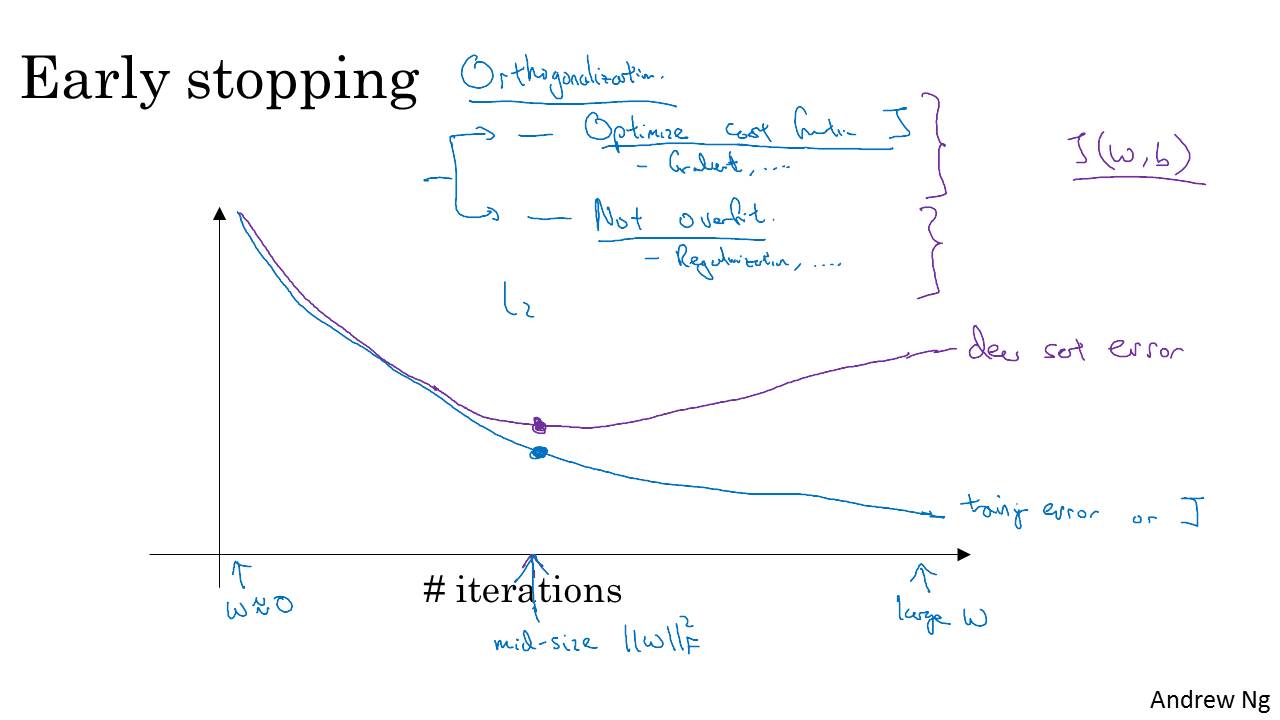 Early stopping
Orthogonalization.
— Optimize cost function J
- Gradient, ....
J(w,b)
— Not overfit.
- Regularization, ....
L2
dev set error
training error or J
# iterations
w≈0
large w
mid-size ||w||²F
Andrew Ng